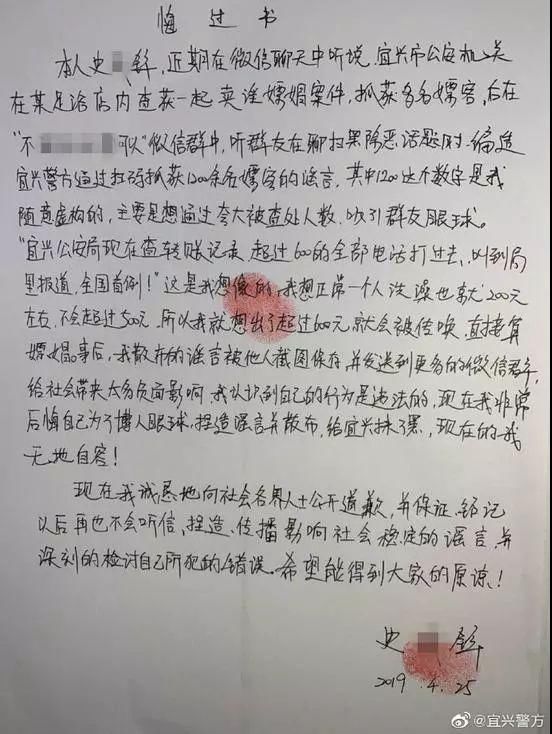 悔过书
本人史 鲜，近期在微信聊天中听说，宜兴市公安机关
在某足浴店内查获一起卖淫嫖娼案件，抓获多名嫖客，后在
“不 可以”微信群中，听群友在聊扫黑除恶话题时，编造
宜兴警方通过扫码抓获1200余名嫖客的谣言，其中1200这个数字是我
随意虚构的，主要是想通过夸大被查处人数，吸引群友眼球。
“宜兴公安局现在查转账记录，超过600的全部电话打过去，叫到局
里报道，全国首例！”这是我想像的，我想正常一个人洗澡也就200元
左右，不会超过500元，所以我就想出了超过600元，就会被传唤，直接算
嫖娼，事后，我散布的谣言被他人截图保存，并发送到更多的微信群，
给社会带来太多负面影响，我认识到自己的行为是违法的，现在我非常
后悔自己为了博人眼球，捏造谣言并散布，给宜兴抹了黑，现在的我
无地自容！
现在我诚恳地向社会各界人士公开道歉，并保证，铭记
以后再也不会听信、捏造、传播影响社会稳定的谣言，并
深刻的检讨自己所犯的错误。希望能得到大家的原谅！
史
2019.4.25
@宜兴警方